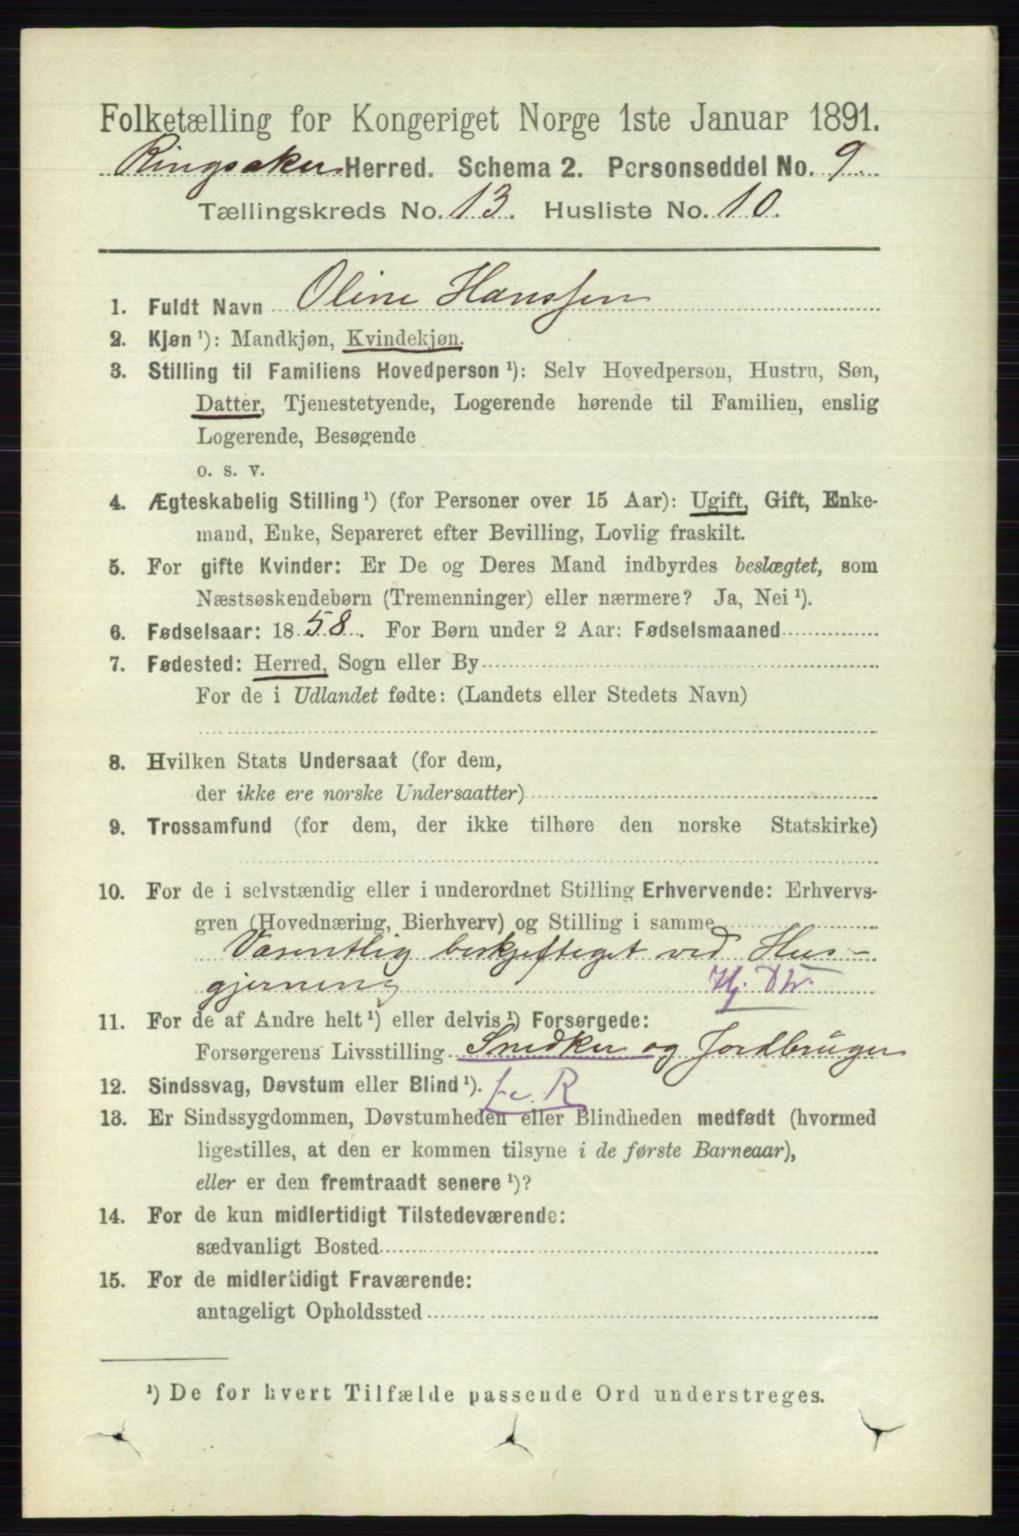 Folketælling for Kongeriget Norge 1ste Januar 1891.
Ringsaker Herred. Schema 2. Personseddel No. 9.
Tællingskreds No. 13. Husliste No. 10.
1. Fuldt Navn Oline Hanssen
2. Kjøn ¹): Mandkjøn, Kvindekjøn.
3. Stilling til Familiens Hovedperson ¹): Selv Hovedperson, Hustru, Søn,
Datter, Tjenestetyende, Logerende hørende til Familien, enslig
Logerende, Besøgende
o. s. v.
4. Ægteskabelig Stilling ¹) (for Personer over 15 Aar): Ugift, Gift, Enke-
mand, Enke, Separeret efter Bevilling, Lovlig fraskilt.
5. For gifte Kvinder: Er De og Deres Mand indbyrdes beslægtet, som
Næstsøskendebørn (Tremenninger) eller nærmere? Ja, Nei ¹).
6. Fødselsaar: 1858. For Børn under 2 Aar: Fødselsmaaned
7. Fødested: Herred, Sogn eller By
For de i Udlandet fødte: (Landets eller Stedets Navn)
8. Hvilken Stats Undersaat (for dem,
der ikke ere norske Undersaatter)
9. Trossamfund (for dem, der ikke tilhøre den norske Statskirke)
10. For de i selvstændig eller i underordnet Stilling Erhvervende: Erhvervs-
gren (Hovednæring, Bierhverv) og Stilling i samme
Væsentlig beskjeftiget ved Hus-
gjerning Hj. Dtr.
11. For de af Andre helt ¹) eller delvis ¹) Forsørgede:
Forsørgerens Livsstilling Snedker og Jordbruger
12. Sindssvag, Døvstum eller Blind ¹).
13. Er Sindssygdommen, Døvstumheden eller Blindheden medfødt (hvormed
ligestilles, at den er kommen tilsyne i de første Barneaar),
eller er den fremtraadt senere ¹)?
14. For de kun midlertidigt Tilstedeværende:
sædvanligt Bosted
15. For de midlertidigt Fraværende:
antageligt Opholdssted
¹) De for hvert Tilfælde passende Ord understreges.